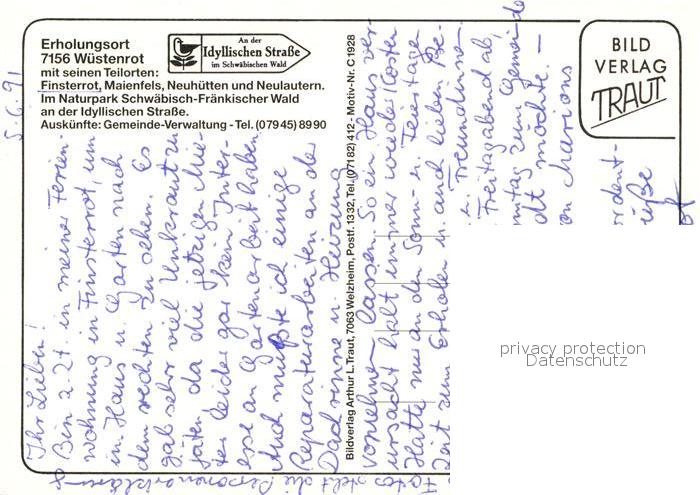 Erholungsort
7156 Wüstenrot
mit seinen Teilorten:
Finsterrot, Maienfels, Neuhütten und Neulautern.
Im Naturpark Schwäbisch-Fränkischer Wald
an der Idyllischen Straße.
Auskünfte: Gemeinde-Verwaltung - Tel. (07945) 8990
An der
Idyllischen Straße
im Schwäbischen Wald
BILD
VERLAG
TRAUT
Bildverlag Arthur L. Traut, 7063 Welzheim, Postf. 1332, Tel. (07182) 412 - Motiv-Nr. C 1928
5.6.91
Ihr Lieben!
Bin z. Zt. in meiner Ferien-
wohnung in Finsterrot, um
in Haus u. Garten nach
dem rechten zu sehen. Es
gab sehr viel Unkraut zu
jäten, da die jetzigen Mie-
ter leider gar kein Inter-
esse an Gartenarbeit haben.
Auch mußte ich einige
Reparaturarbeiten an der
Dachrinne u. Heizung
vornehmen lassen. So ein Haus ver-
ursacht halt immer wieder Kosten
Hätte nur an den Sonn- u. Feiertagen
Zeit zum Erholen u. and. lieben Be-
u. Freundinnen
Freitagabend ab,
zur Gemeinde
möchte. —
von
ordent-